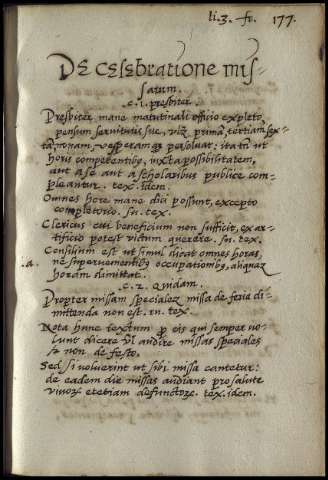 li.3. fo. 177.
DE celebratione mis-
sarum.
c. 1. presbiter.
Presbiter mane matutinali officio expleto
pensum servitutis sue, vidz primā tertiam sex-
tā, nonam, vesperamqz persoluat: ita tn̄ ut
horis competentibz, iuxta possibilitatem,
aut a se aut a scholaribus publice com-
pleantur. tex. idem.
Omnes hore mane dici possunt, excepto
completorio. in. tex.
Clericus cui beneficium non sufficit, ex ar-
tificio potest victum querere. in. tex.
Consilium est ut simul dicat omnes horas,
.a. ne supervenientibz occupationibz, aliquā
horam dimittat.
c. 2. Quidam.
Propter missam specialez missa de ferie di-
mittenda non est. in. tex.
Nota hunc textum pro eis qui semper vo-
lunt dicere vl audire missas speciales
& non de festo.
Sed si voluerint ut sibi missa cantetur:
de eadem die missas audiant pro salute
vivorz et etiam defunctorz. tex. idem.